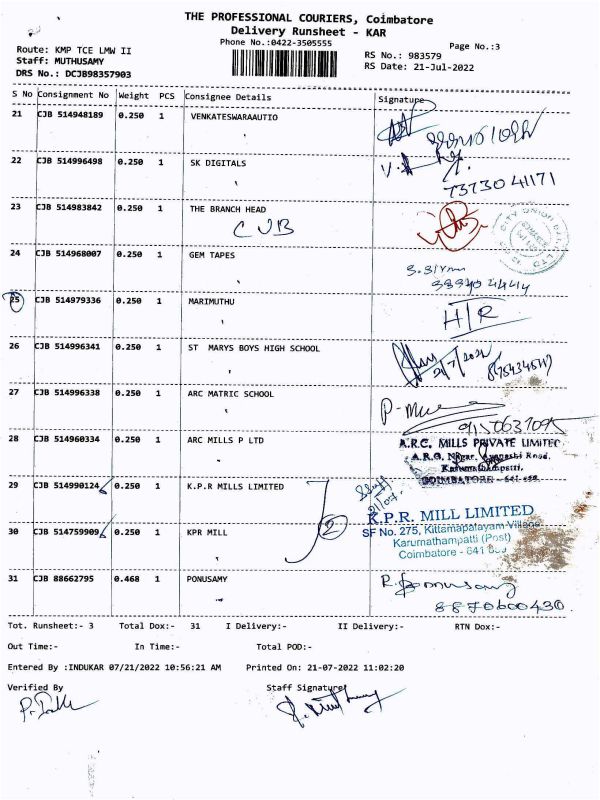 THE PROFESSIONAL COURIERS, Coimbatore
Delivery Runsheet - KAR
Phone No.:0422-3505555
Page No.:3
Route: KMP TCE LMW II
Staff: MUTHUSAMY
DRS No.: DCJB98357903
RS No.: 983579
RS Date: 21-Jul-2022
S No Consignment No Weight PCS Consignee Details Signature
21 CJB 514948189 0.250 1 VENKATESWARAAUTIO
22 CJB 514996498 0.250 1 SK DIGITALS
73730 41171
23 CJB 514983842 0.250 1 THE BRANCH HEAD
CUB
CITY UNION BANK LTD
24 CJB 514968007 0.250 1 GEM TAPES
25 CJB 514979336 0.250 1 MARIMUTHU
H/R
26 CJB 514996341 0.250 1 ST MARYS BOYS HIGH SCHOOL
21/7/2022
27 CJB 514996338 0.250 1 ARC MATRIC SCHOOL
9150637095
28 CJB 514960334 0.250 1 ARC MILLS P LTD
A.R.C. MILLS PRIVATE LIMITED
A.R.C. Nagar, Avanashi Road,
Karumathampatti,
COIMBATORE - 641
29 CJB 514990124 0.250 1 K.P.R MILLS LIMITED
2
K.P.R. MILL LIMITED
30 CJB 514759909 0.250 1 KPR MILL
SF No. 275, Kittampalayam Village
Karumathampatti (Post)
Coimbatore - 641
31 CJB 88662795 0.468 1 PONUSAMY
8870600430.
Tot. Runsheet:- 3 Total Dox:- 31 I Delivery:- II Delivery:- RTN Dox:-
Out Time:- In Time:- Total POD:-
Entered By :INDUKAR 07/21/2022 10:56:21 AM Printed On: 21-07-2022 11:02:20
Verified By Staff Signature